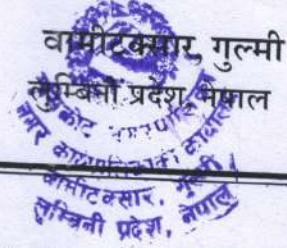 वामीटक्सार, गुल्मी
लुम्बिनी प्रदेश, नेपाल
नगर कार्यपालिकाको
वामीटक्सार, गुल्मी
लुम्बिनी प्रदेश, नेपाल